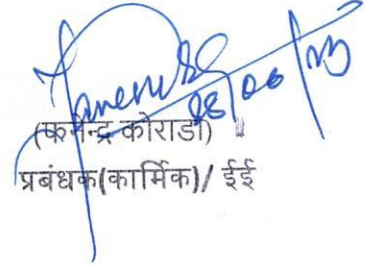 28/06/23
(फनेन्द्र कोराडा)
प्रबंधक(कार्मिक)/ ईई